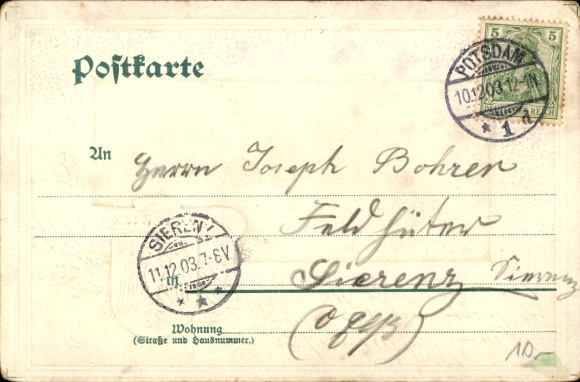 Postkarte
5 5
DEUTSCHES REICH
POTSDAM
10.12.03.12-1N.
* 1 d
An
Herrn Joseph Bohrer
Feldhüter
in Sierenz Sierenz
(Elsaß)
SIERENZ
11.12.03.7-8V
* * *
Wohnung
(Straße und Hausnummer.)
10,-